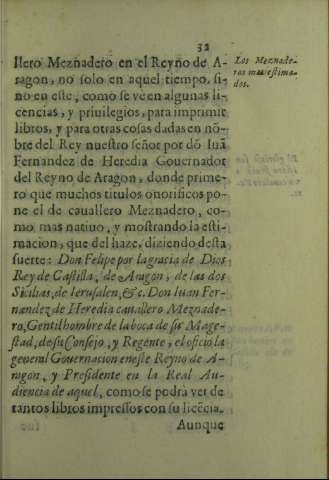 32
llero Meznadero en el Reyno de A-
ragon, no solo en aquel tiempo, si-
no en este, como se ve en algunas li-
cencias, y priuilegios, para imprimir
libros, y para otras cosas dadas en nõ-
bre del Rey nuestro señor por dõ Iuã
Fernandez de Heredia Gouernador
del Reyno de Aragon, donde prime-
ro que muchos titulos onorificos po-
ne el de cauallero Meznadero, co-
mo mas natiuo, y mostrando la esti-
macion, que del haze, diziendo desta
suerte: Don Felipe por la gracia de Dios
Rey de Castilla, de Aragon, de las dos
Sicilias, de Ierusalen, &c. Don Iuan Fer-
nandez de Heredia cauallero Meznade-
ro, Gentilhombre de la boca de su Mage-
stad, de su Consejo, y Regente, el oficio la
general Gouernacion en este Reyno de A-
ragon, y Presidente en la Real Au-
diencia de aquel, como se podrà ver de
tantos libros impressos con su licẽcia.
Aunque
Los Meznade-
ros mas estima-
dos.